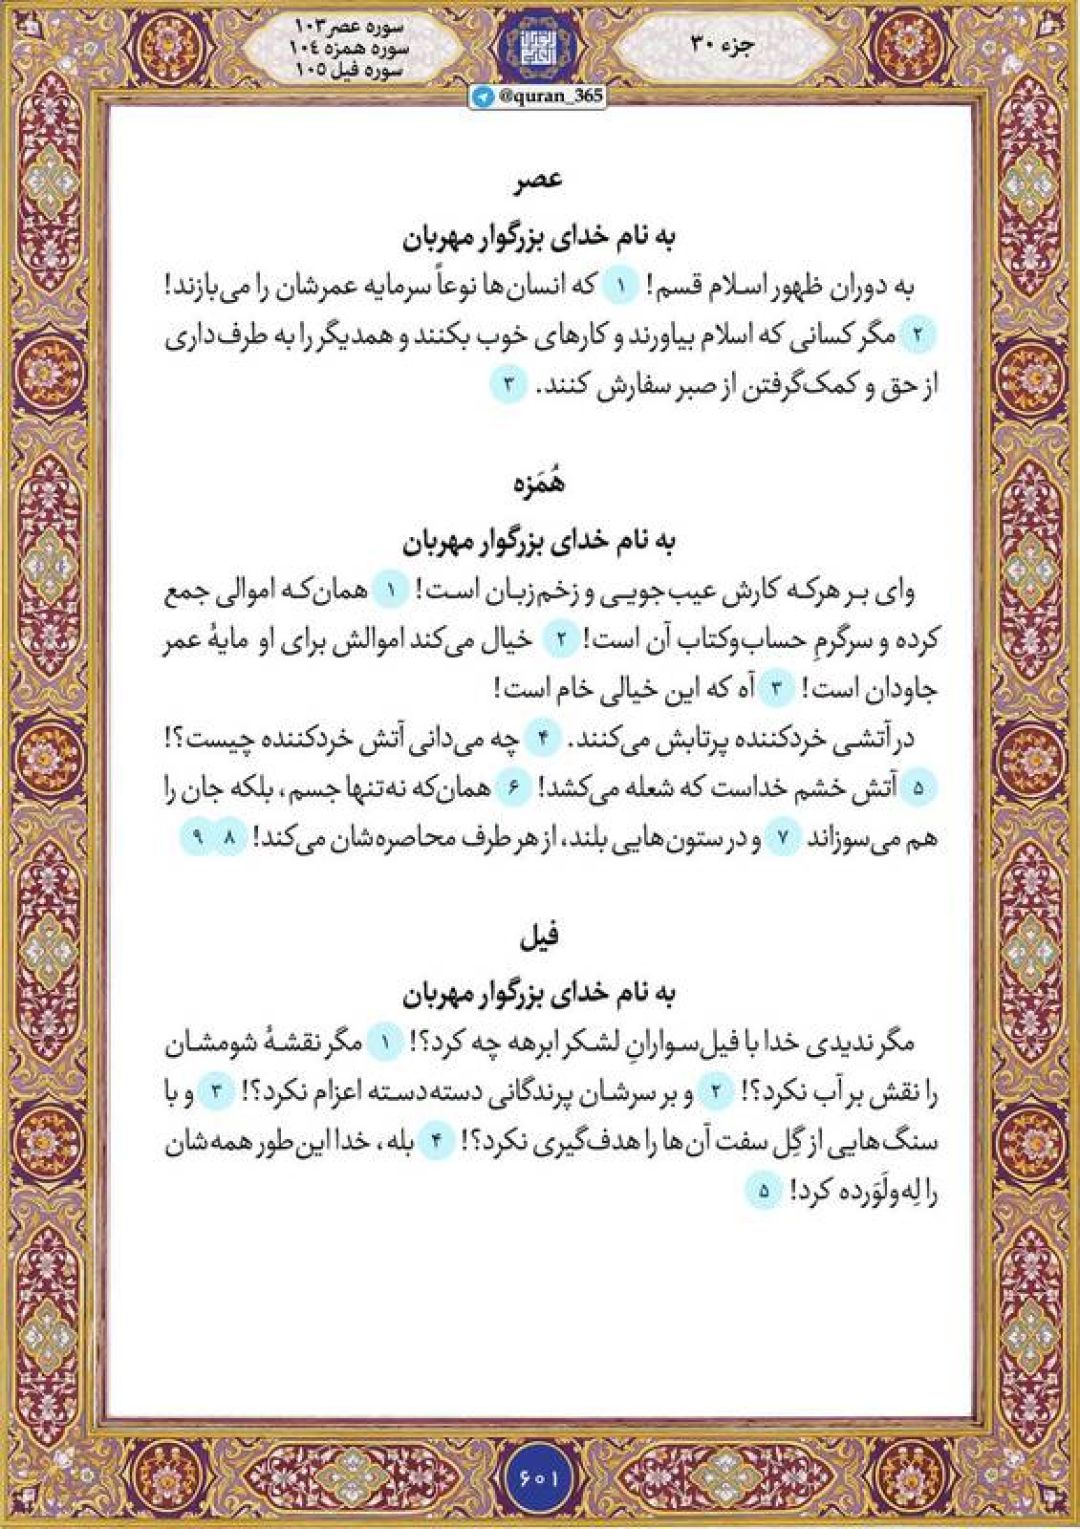 جزء ۳۰
سوره عصر ۱۰۳
سوره همزه ۱۰٤
سوره فیل ۱۰۵
@quran_365
عصر
به نام خدای بزرگوار مهربان
به دوران ظهور اسلام قسم! ۱ که انسان‌ها نوعاً سرمایه عمرشان را می‌بازند!
۲ مگر کسانی که اسلام بیاورند و کارهای خوب بکنند و همدیگر را به طرف‌داری
از حق و کمک‌گرفتن از صبر سفارش کنند. ۳
هُمَزه
به نام خدای بزرگوار مهربان
وای بر هرکه کارش عیب‌جویی و زخم‌زبان است! ۱ همان‌که اموالی جمع
کرده و سرگرمِ حساب‌وکتاب آن است! ۲ خیال می‌کند اموالش برای او مایهٔ عمر
جاودان است! ۳ آه که این خیالی خام است!
در آتشی خردکننده پرتابش می‌کنند. ۴ چه می‌دانی آتش خردکننده چیست؟!
۵ آتش خشم خداست که شعله می‌کشد! ۶ همان‌که نه‌تنها جسم، بلکه جان را
هم می‌سوزاند ۷ و در ستون‌هایی بلند، از هر طرف محاصره‌شان می‌کند! ۸ ۹
فیل
به نام خدای بزرگوار مهربان
مگر ندیدی خدا با فیل‌سوارانِ لشکر ابرهه چه کرد؟! ۱ مگر نقشهٔ شومشان
را نقش بر آب نکرد؟! ۲ و بر سرشان پرندگانی دسته‌دسته اعزام نکرد؟! ۳ و با
سنگ‌هایی از گِل سفت آن‌ها را هدف‌گیری نکرد؟! ۴ بله، خدا این‌طور همه‌شان
را لِه‌ولَوَرده کرد! ۵
۶۰۱